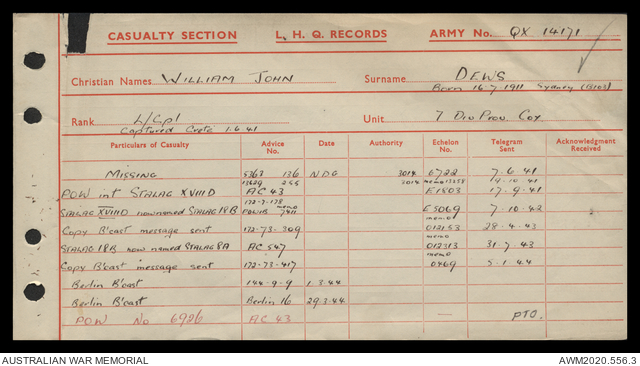 CASUALTY SECTION L. H. Q. RECORDS ARMY No. QX 14171
Christian Names WILLIAM JOHN Surname DEWS
Born 16.7.1911 Sydney (B103)
Rank L/Cpl Unit 7 Div Prov. Coy
Captured Crete 1.6.41
Particulars of Casualty Advice No. Date Authority Echelon No. Telegram Sent Acknowledgment Received
MISSING 5763 136 NDG 3014 6722 7.6.41
13629 255 3014 memo 13258 14.10.41
POW int STALAG XVIIID AC 43 E1803 17.9.41
172-7-178 memo
STALAG XVIIID now named STALAG 18B POWHB 7411 E5069 7.10.42
memo
Copy B'cast message sent 172-73-209 012153 28.4.43
memo
STALAG 18B now named STALAG 8A AC 547 012313 31.7.43
memo
Copy B'cast message sent 172-73-417 0469 5.1.44
Berlin B'cast 144-9-9 1.3.44
Berlin B'cast Berlin 16 29.3.44
POW No 6926 AC 43 — PTO.
AUSTRALIAN WAR MEMORIAL AWM2020.556.3